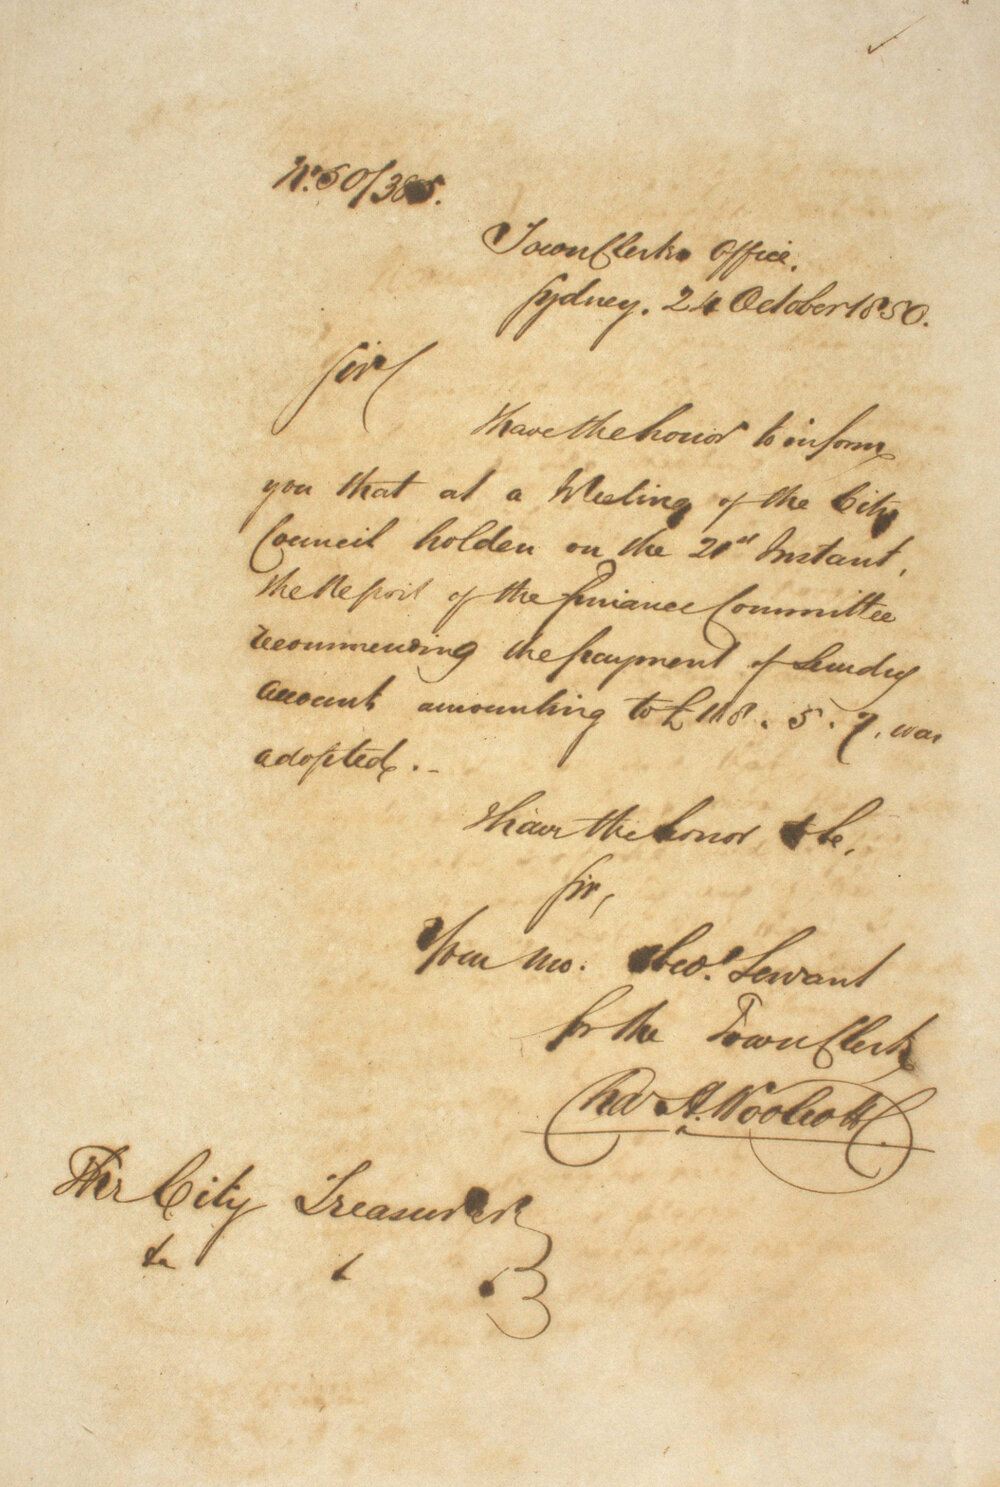 No. 50/385.
Town Clerks Office.
Sydney. 24 October 1850.
Sir
I have the honor to inform
you that at a Meeting of the City
Council holden on the 21st Instant,
the Report of the Finance Committee
recommending the payment of Sundry
account amounting to £118. 5. 7. was
adopted. -
I have the honor to be,
Sir,
Your mo. Obed. Servant
for the Town Clerk
Chas H. Woolcott
The City Treasurer
&c & &